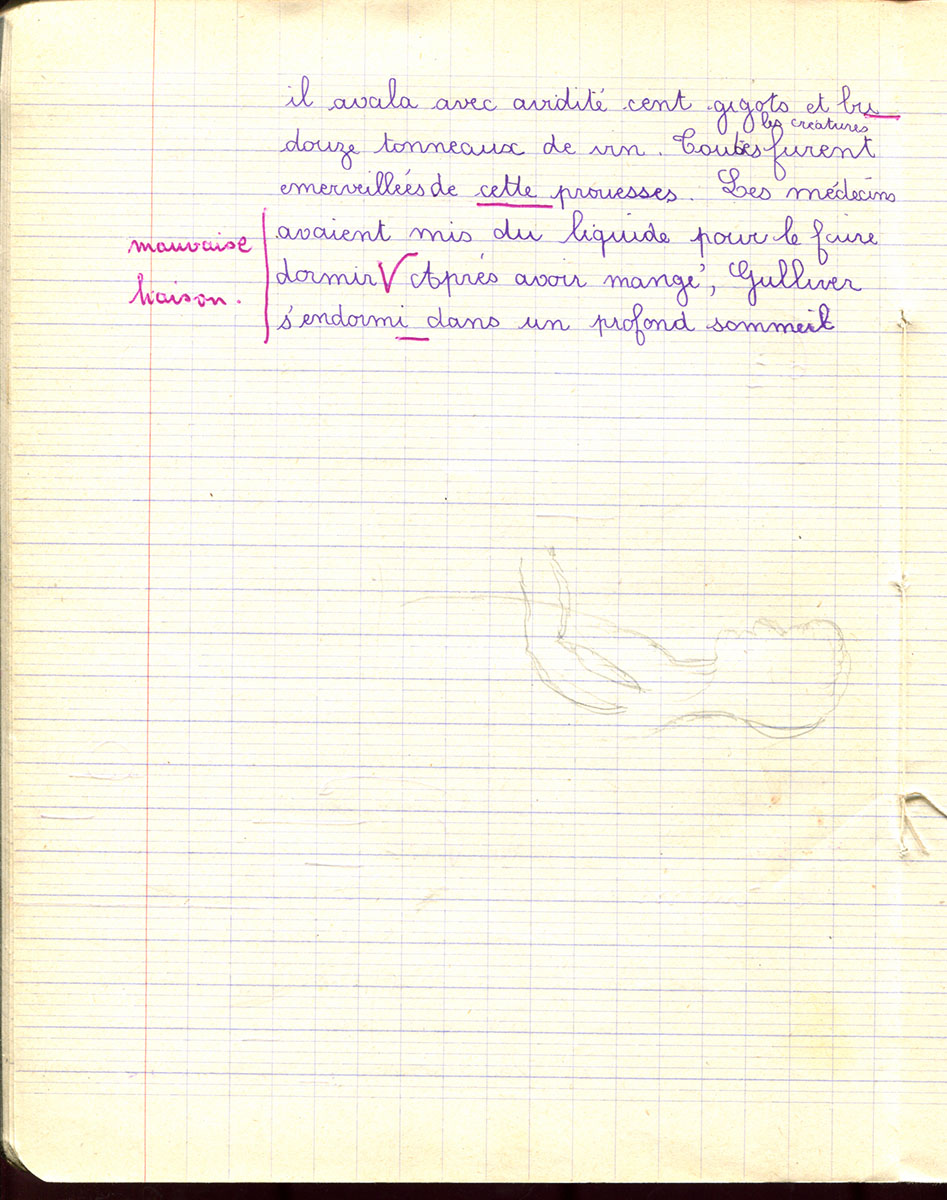 il avala avec avidité cent gigots et bu
les créatures
douze tonneaux de vin. Toutes furent
emerveillées de cette prouesses. Les médecins
avaient mis du liquide pour le faire
mauvaise
dormir Après avoir mangé, Gulliver
liaison.
s'endormi dans un profond sommeil